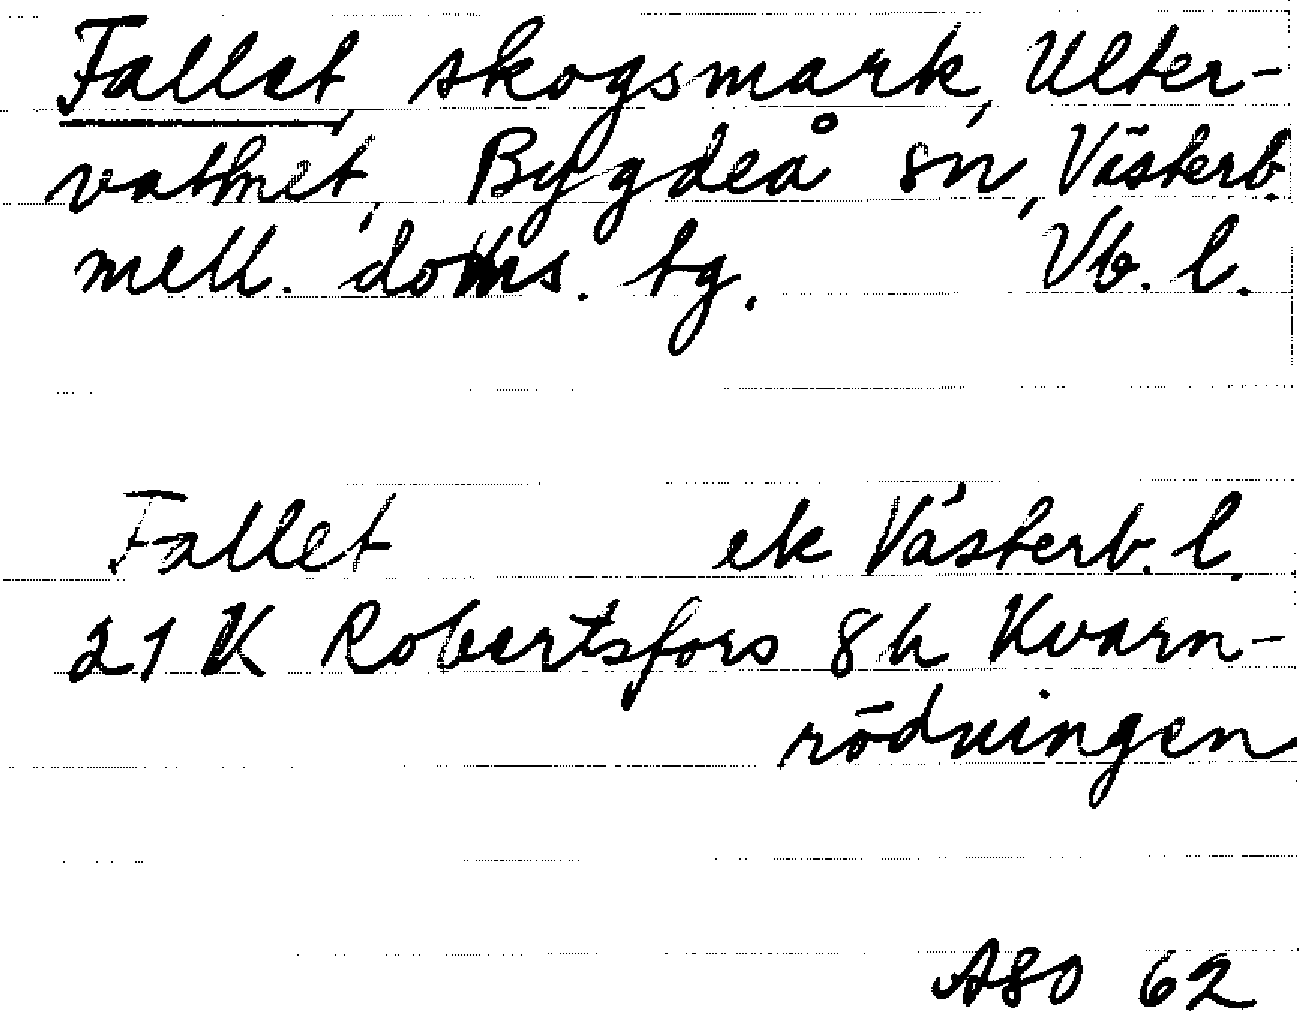 Fallet, skogsmark, Ulter-
vattnet, Bygdeå sn, Västerb.
mell. doms. tg. Vb. l.
Fallet ek Västerb. l.
21 K Robertsfors 8h Kvarn-
rödningen
ASO 62